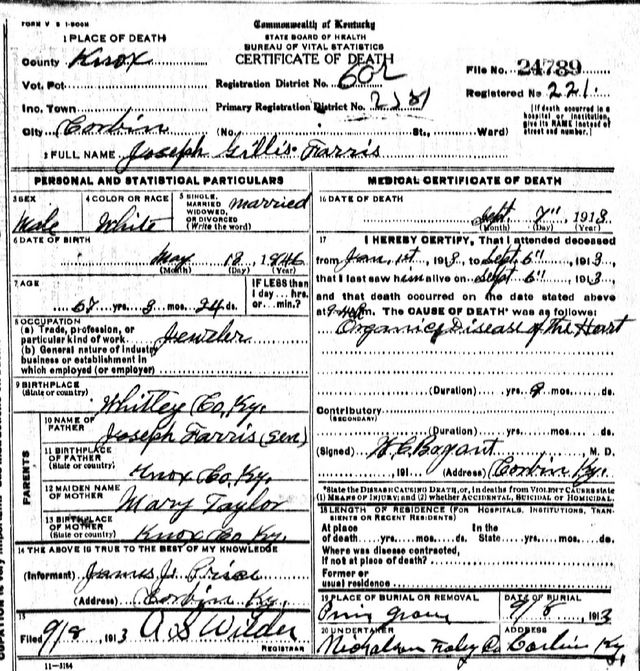 FORM V S 1-500M
Commonwealth of Kentucky
STATE BOARD OF HEALTH
BUREAU OF VITAL STATISTICS
CERTIFICATE OF DEATH
1 PLACE OF DEATH
County Knox
Vot. Pct.
Inc. Town
City Corbin
Registration District No. 602
Primary Registration District No.
(No. St., Ward)
File No. 24789
Registered No 221.
[If death occurred in a
hospital or institution,
give its NAME instead of
street and number.]
2 FULL NAME Joseph Gillis Farris
PERSONAL AND STATISTICAL PARTICULARS
3 SEX
Male
4 COLOR OR RACE
White
5 SINGLE,
MARRIED
WIDOWED,
OR DIVORCED
(Write the word)
married
6 DATE OF BIRTH
May 18, 1846
(Month) (Day) (Year)
7 AGE
67 yrs. 3 mos. 24 ds.
IF LESS than
1 day... hrs.
or min.?
8 OCCUPATION
(a) Trade, profession, or
particular kind of work Jeweler
(b) General nature of industry
business or establishment in
which employed (or employer)
9 BIRTHPLACE
(State or country)
Whitley Co, Ky.
PARENTS
10 NAME OF
FATHER
Joseph Farris (Sen)
11 BIRTHPLACE
OF FATHER
(State or country)
Knox Co, Ky.
12 MAIDEN NAME
OF MOTHER
Mary Taylor
13 BIRTHPLACE
OF MOTHER
(State or country)
Knox Co Ky.
14 THE ABOVE IS TRUE TO THE BEST OF MY KNOWLEDGE
(Informant) James J. Price
(Address) Corbin Ky.
15
Filed 9/8 1913 A S Wilder
REGISTRAR
11-3184
MEDICAL CERTIFICATE OF DEATH
16 DATE OF DEATH
Sept. 7", 1913
(Month) (Day) (Year)
17 I HEREBY CERTIFY, That I attended deceased
from Jan. 1st, 1913, to Sept. 6", 1913,
that I last saw him alive on Sept 6", 1913,
and that death occurred on the date stated above
at m. The CAUSE OF DEATH* was as follows:
Organic Disease of the Hart
(Duration) yrs. 9 mos. ds.
Contributory
(SECONDARY)
(Duration) yrs. mos. ds.
(Signed) M. D.
, 191 (Address) Corbin Ky.
*State the DISEASE CAUSING DEATH, or, in deaths from VIOLENT CAUSES state
(1) MEANS OF INJURY; and (2) whether ACCIDENTAL, SUICIDAL or HOMICIDAL.
18 LENGTH OF RESIDENCE (FOR HOSPITALS, INSTITUTIONS, TRANSIENTS OR RECENT RESIDENTS)
At place
of death yrs. mos. ds.
In the
State yrs. mos. ds.
Where was disease contracted,
if not at place of death?
Former or
usual residence
19 PLACE OF BURIAL OR REMOVAL
DATE OF BURIAL
9/8, 1913
20 UNDERTAKER
ADDRESS
Corbin Ky